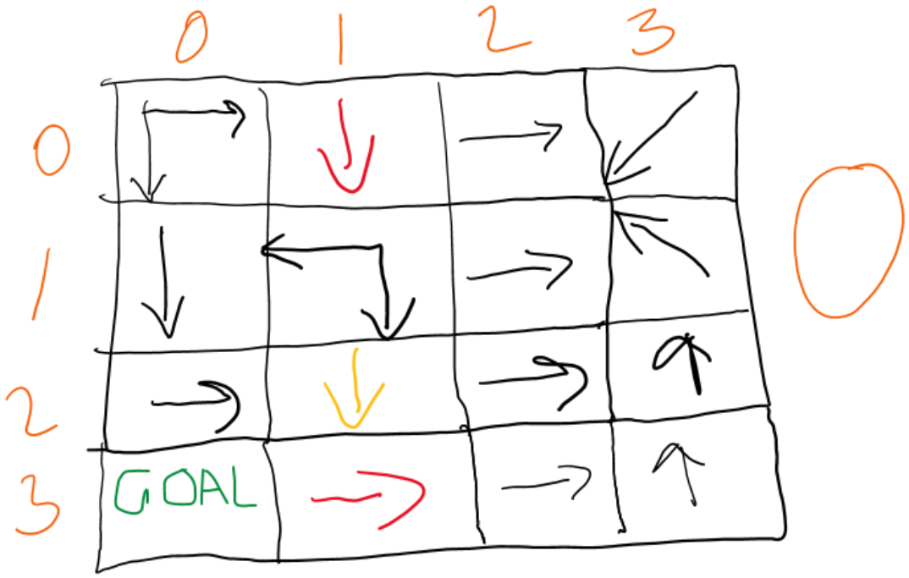 0 1 2 3
0
1
2
3 GOAL